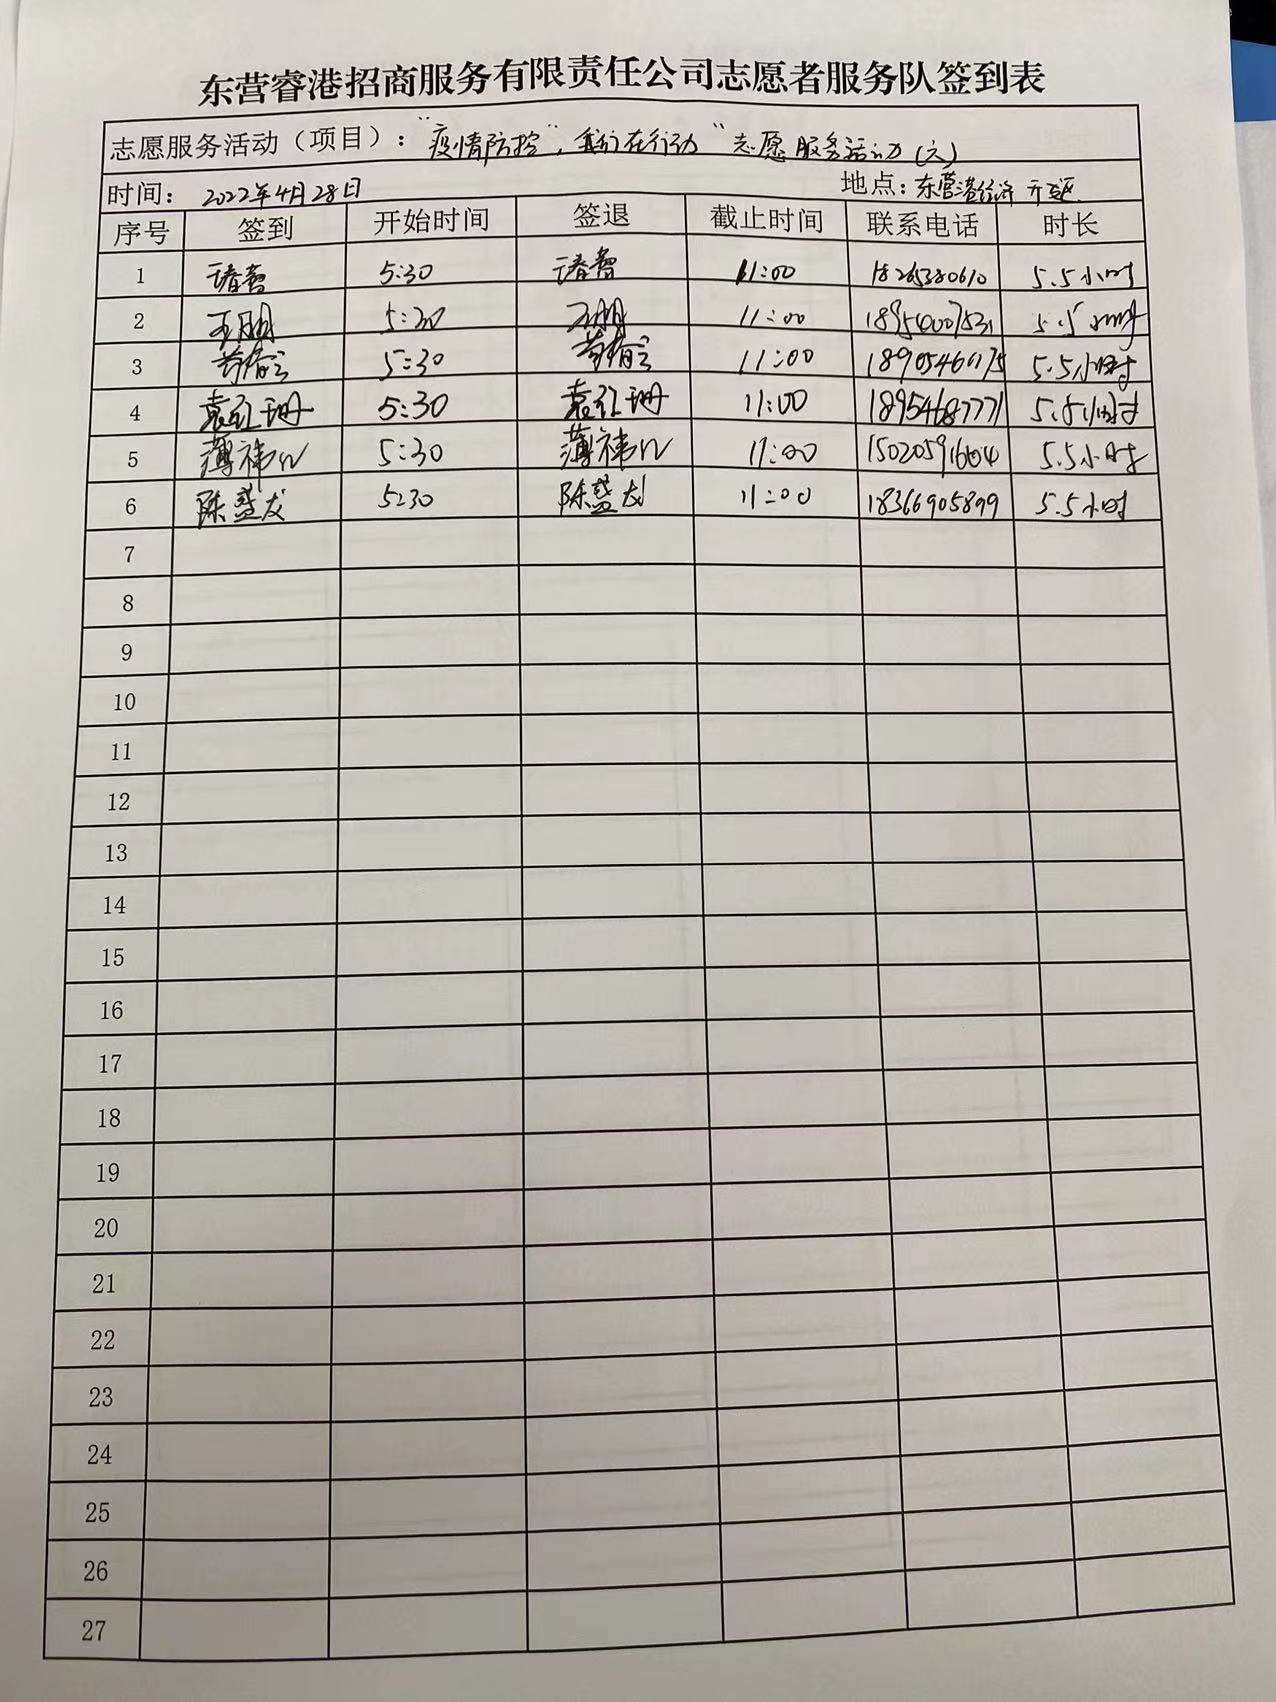 东营睿港招商服务有限责任公司志愿者服务队签到表
志愿服务活动（项目）：“疫情防控”，我们在行动”志愿服务活动（六）
时间：2022年4月28日 地点：东营港经济开发区
序号 签到 开始时间 签退 截止时间 联系电话 时长
1 5:30 11:00 18265380610 5.5小时
2 王朋 5:30 王朋 11:00 18954007531 5.5小时
3 5:30 11:00 5.5小时
4 袁红珊 5:30 袁红珊 11:00 18954687771 5.5小时
5 薄祎 5:30 薄祎 11:00 15020591604 5.5小时
6 陈盛龙 5:30 陈盛龙 11:00 18366905899 5.5小时
7
8
9
10
11
12
13
14
15
16
17
18
19
20
21
22
23
24
25
26
27